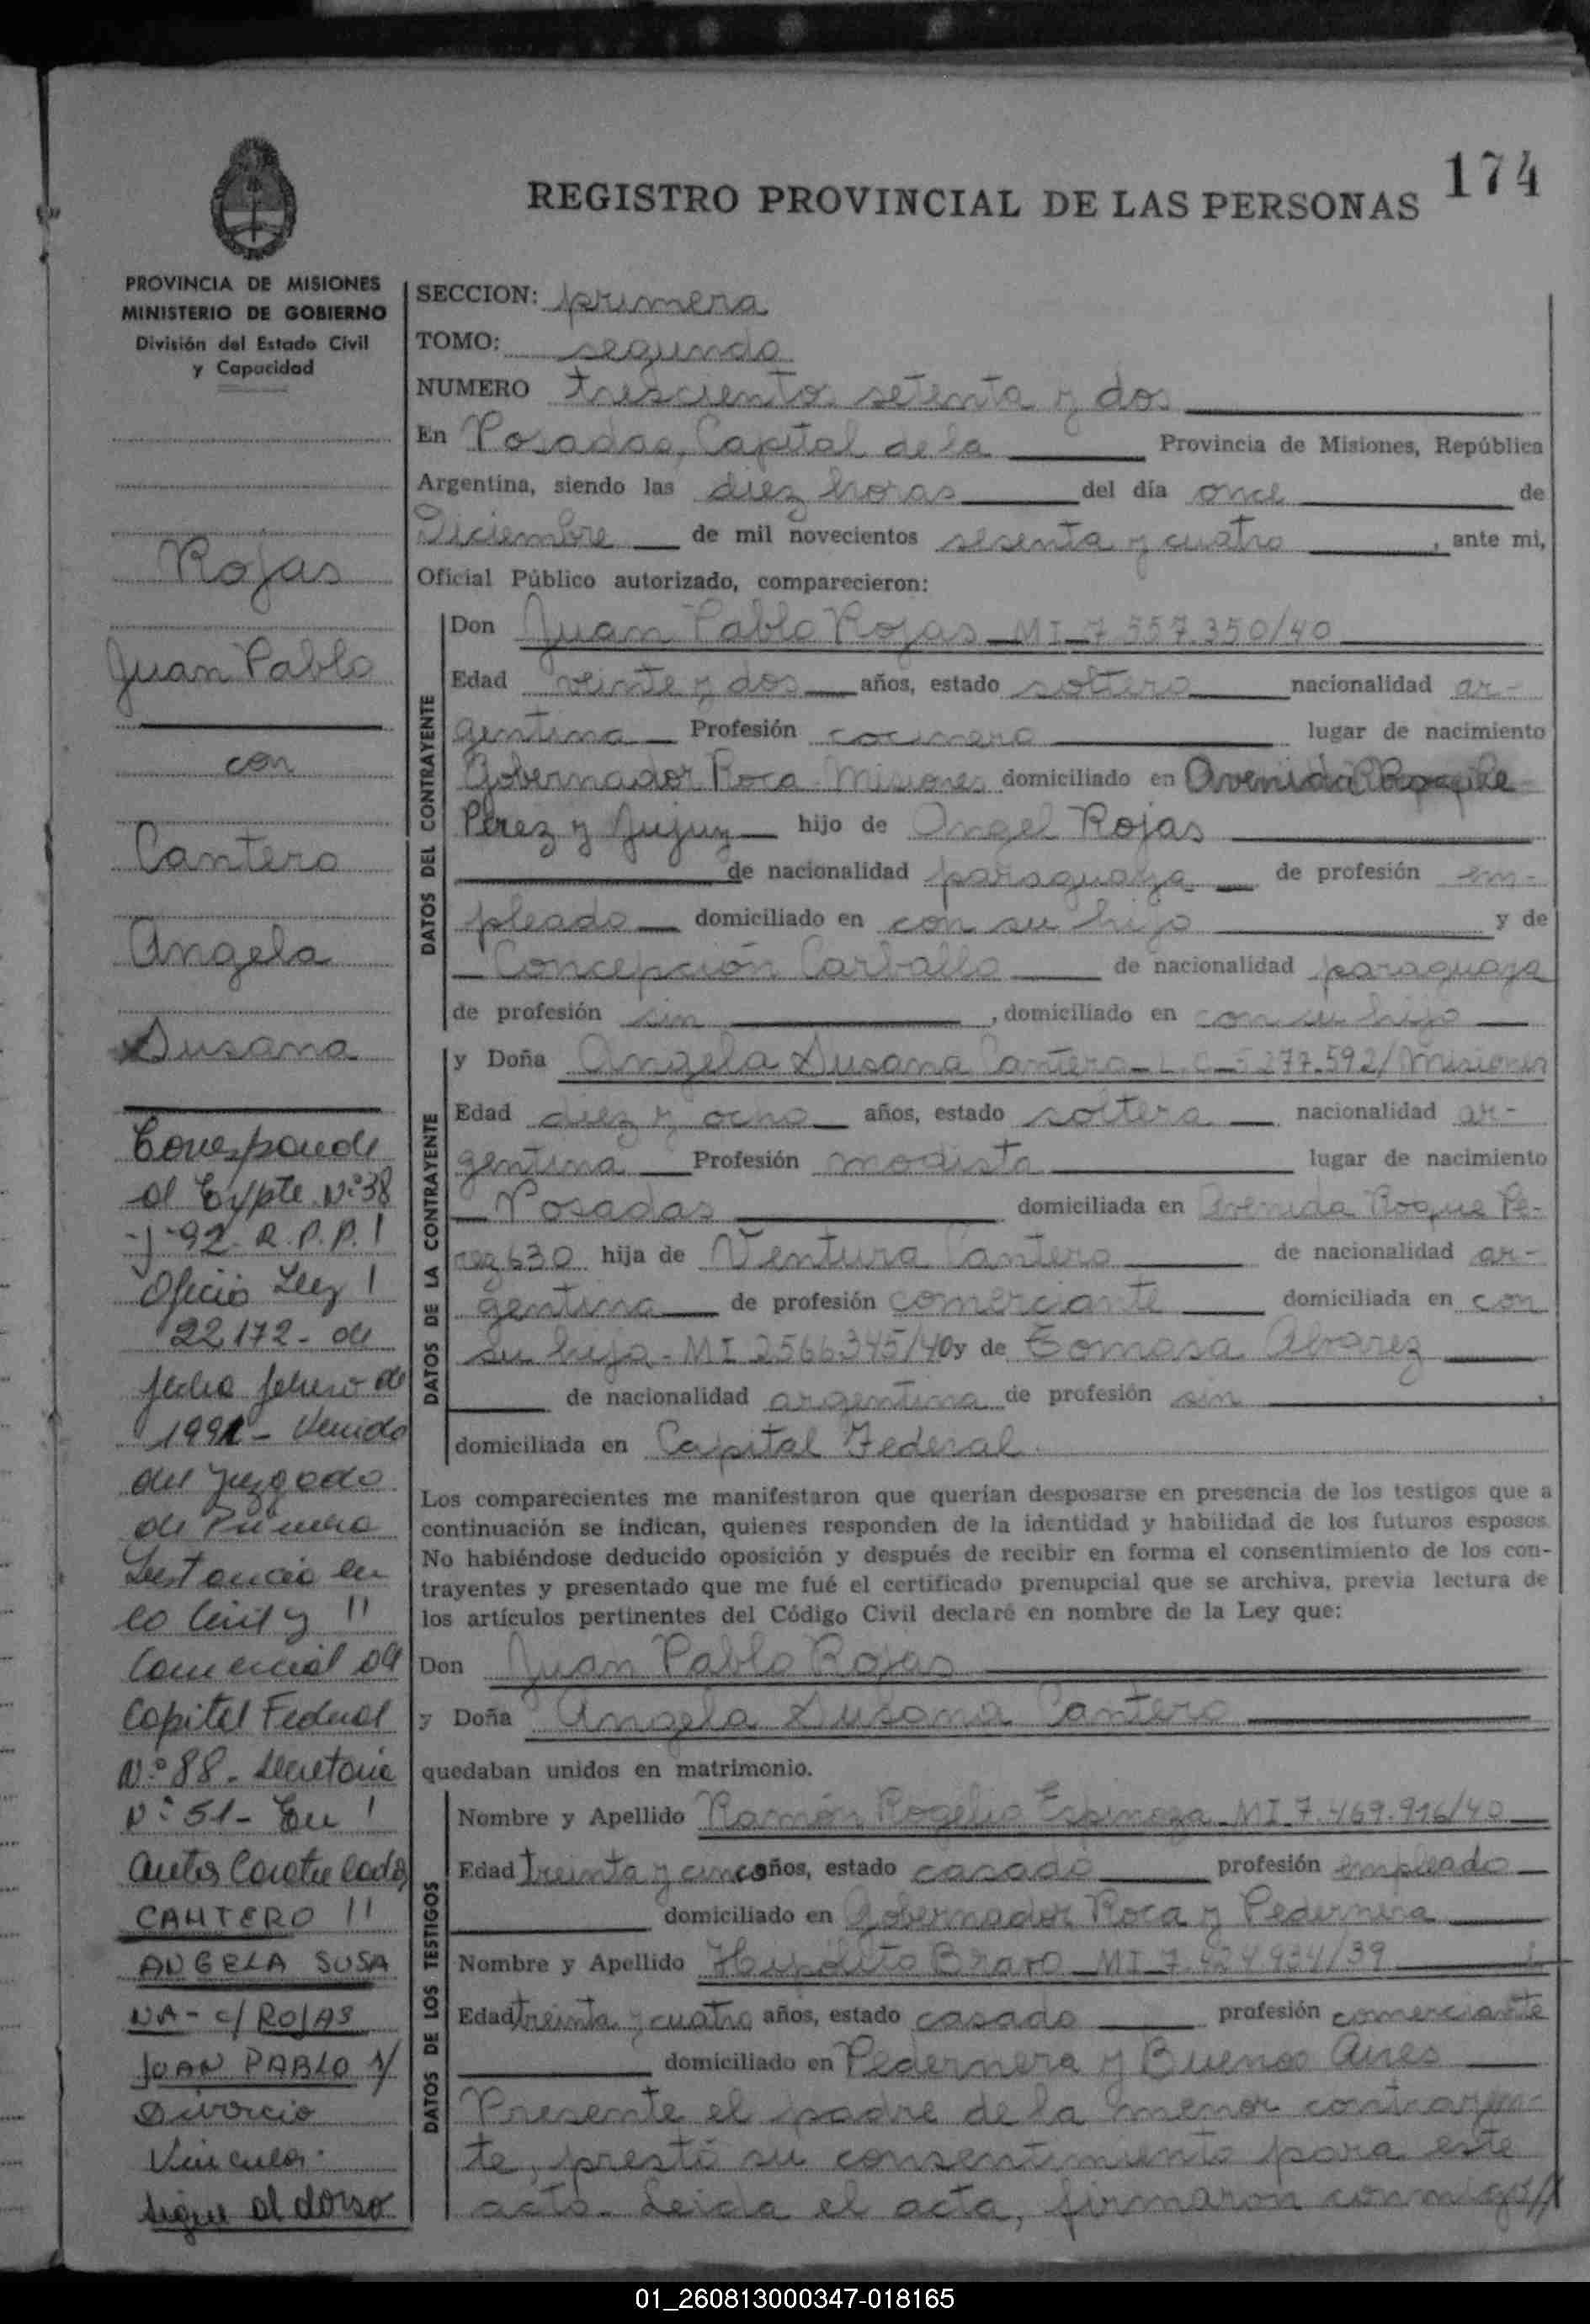 174
REGISTRO PROVINCIAL DE LAS PERSONAS
PROVINCIA DE MISIONES
MINISTERIO DE GOBIERNO
División del Estado Civil
y Capacidad
Rojas
Juan Pablo
con
Cantero
Angela
Susana
Corresponde
al Expte. Nº 38
-J-92- R.P.P.!
Oficio Ley !
22.172- de
fecha febrero de
1992- Venido
del Juzgado
de Primera
Instancia en
lo Civil y !!
Comercial de
Capital Federal
Nº 88- Secretaria
Nº 51- En !
autos Caratulados
CANTERO !!
ANGELA SUSA
NA - c/ ROJAS
JUAN PABLO s/
Divorcio
Vincular.
Sigue al dorso
SECCION: primera
TOMO: segundo
NUMERO trescientos setenta y dos
En Posadas, Capital de la Provincia de Misiones, República
Argentina, siendo las diez horas del día once de
Diciembre de mil novecientos sesenta y cuatro, ante mi,
Oficial Público autorizado, comparecieron:
DATOS DEL CONTRAYENTE
Don Juan Pablo Rojas - MI - 7.557.350/40
Edad veinte y dos años, estado soltero nacionalidad ar-
gentina Profesión cocinero lugar de nacimiento
Gobernador Roca - Misiones domiciliado en Avenida Roque
Pérez y Jujuy hijo de Angel Rojas
de nacionalidad paraguaya de profesión em-
pleado domiciliado en con su hijo y de
Concepción Carballo de nacionalidad paraguaya
de profesión sin, domiciliado en con su hijo
DATOS DE LA CONTRAYENTE
y Doña Angela Susana Cantero - L.C. - 5.277.592/Misiones
Edad diez y ocho años, estado soltera nacionalidad ar-
gentina Profesión modista lugar de nacimiento
Posadas domiciliada en Avenida Roque Pé-
rez 630 hija de Ventura Cantero de nacionalidad ar-
gentina de profesión comerciante domiciliada en con
su hija - MI 2566345/40 y de Tomasa Alvarez
de nacionalidad argentina de profesión sin,
domiciliada en Capital Federal.
Los comparecientes me manifestaron que querían desposarse en presencia de los testigos que a
continuación se indican, quienes responden de la identidad y habilidad de los futuros esposos.
No habiéndose deducido oposición y después de recibir en forma el consentimiento de los con-
trayentes y presentado que me fué el certificado prenupcial que se archiva, previa lectura de
los artículos pertinentes del Código Civil declaré en nombre de la Ley que:
Don Juan Pablo Rojas
y Doña Angela Susana Cantero
quedaban unidos en matrimonio.
DATOS DE LOS TESTIGOS
Nombre y Apellido Ramón Rogelio Espinoza - MI 7.469.916/40
Edad treinta y cinco años, estado casado profesión empleado
domiciliado en Gobernador Roca y Pedernera
Nombre y Apellido Hipólito Bravo - MI - 7.424.934/39
Edad treinta y cuatro años, estado casado profesión comerciante
domiciliado en Pedernera y Buenos Aires
Presente el padre de la menor contrayen-
te, prestó su consentimiento para este
acto. Leida el acta, firmaron conmigo//
01_260813000347-018165